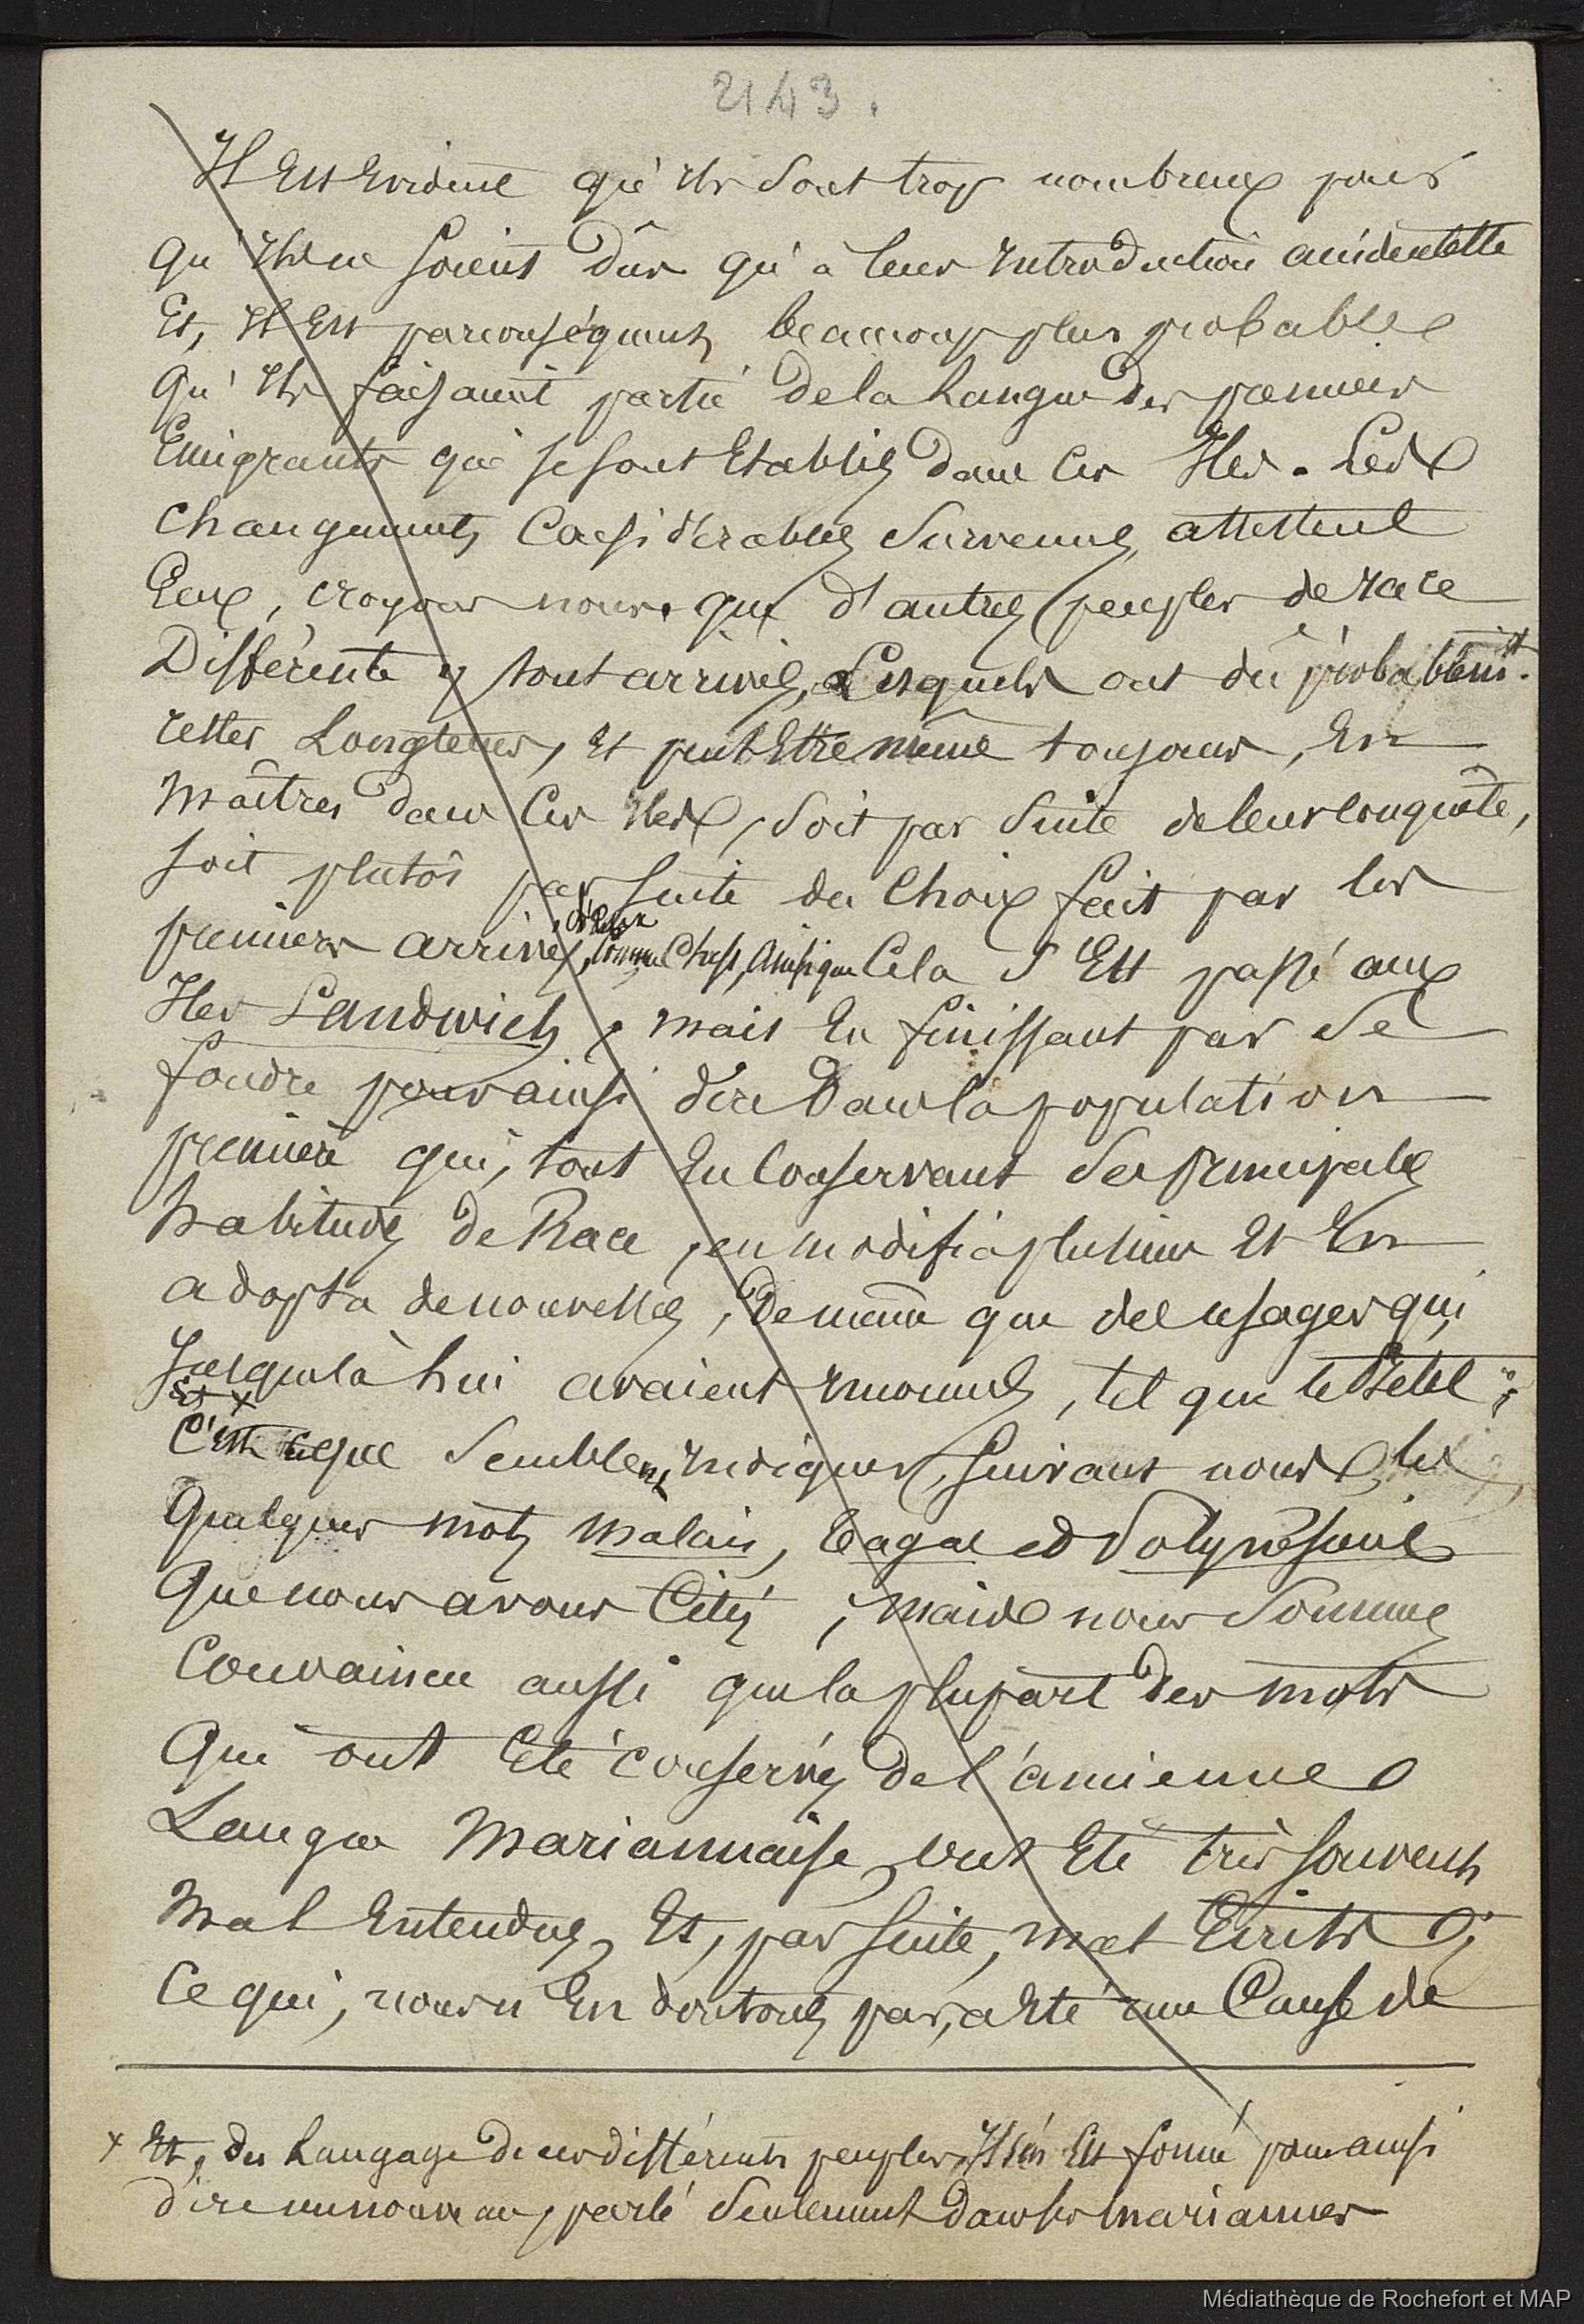 2143.
Il Est Evident qu'ils sont trop nombreux pour
qu'ils ne soient dûs qu'à leur Introduction accidentelle
Et, Il Est parconséquent beaucoup plus probable
qu'Ils faisaient partie de la Langue des premiers
Emigrants qui se sont Etablis dans ces Iles. Les
changements Considérables survenus, attestent
Eux, croyons nous, que d'autres peuples de race
Différente y sont arrivés, Lesquels ont dû probablemt.
rester Longtems, Et peut Etre même toujours, En
maîtres dans ces Iles, soit par suite de leur conquête,
soit plutôt par suite du Choix fait par les
premiers arrivés, d'eux
comme Chefs, Ainsi que Cela s'Est passé aux
Iles Sandwich ; mais En finissant par se
fondre pour ainsi dire Dans la population
première qui, tout En Conservant ses principales
habitudes de Race, en modifia plusieurs Et En
adopta de nouvelles, De même que des usages qui
Jusques là lui avaient inconnus, tel que le Bétel ;
Et x
C'est ce que semblent Indiquer, suivant nous, les
Quelques mots malais, tagal et Polynésiens
Que nous avons Cités ; mais nous sommes
Convaincu aussi que la plupart des mots
Qui ont Eté conservés de l'ancienne
Langue Mariannaise, ont Eté très souvent
mal Entendus, Et, par suite, mal Ecrits ;
Ce qui, nous n'En doutons pas, a Eté une Cause de
x Et, du Langage de ces différents peuples, Il s'en Est formé pour ainsi
dire un nouveau, parlé seulement dans les mariannes
Médiathèque de Rochefort et MAP